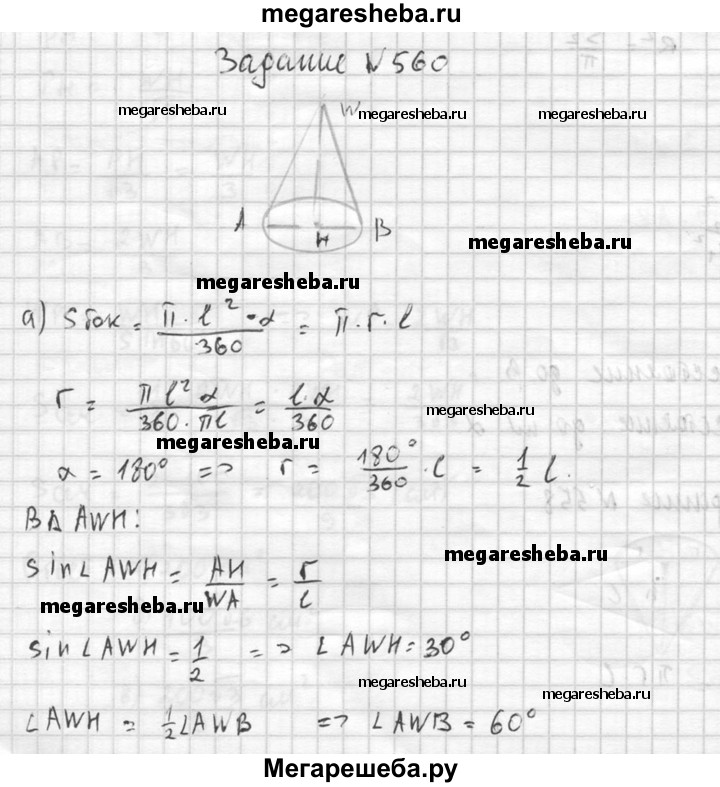 megaresheba.ru
Задание №560
megaresheba.ru megaresheba.ru megaresheba.ru
W
A H B
megaresheba.ru
megaresheba.ru
а) Sбок = π · l² · α / 360 = π · r · l
r = π l² α / 360 · πl = l · α / 360
megaresheba.ru
megaresheba.ru
α = 180° => r = 180° / 360 · l = 1/2 l.
В Δ AWH:
megaresheba.ru
sin∠AWH = AH / WA = r / l
megaresheba.ru
sin∠AWH = 1/2 => ∠AWH = 30°
megaresheba.ru
megaresheba.ru
∠AWH = 1/2∠AWB => ∠AWB = 60°
Мегарешеба.ру